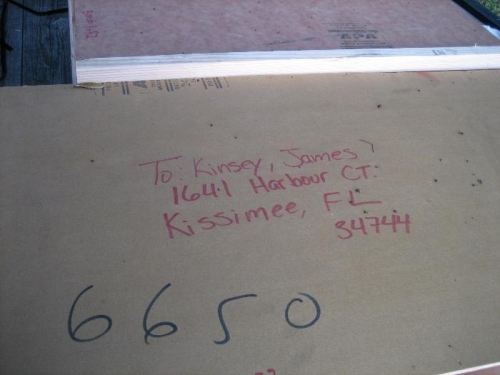 APA
To: Kinsey, James
1641 Harbour CT.
Kissimee, FL
34744
6650